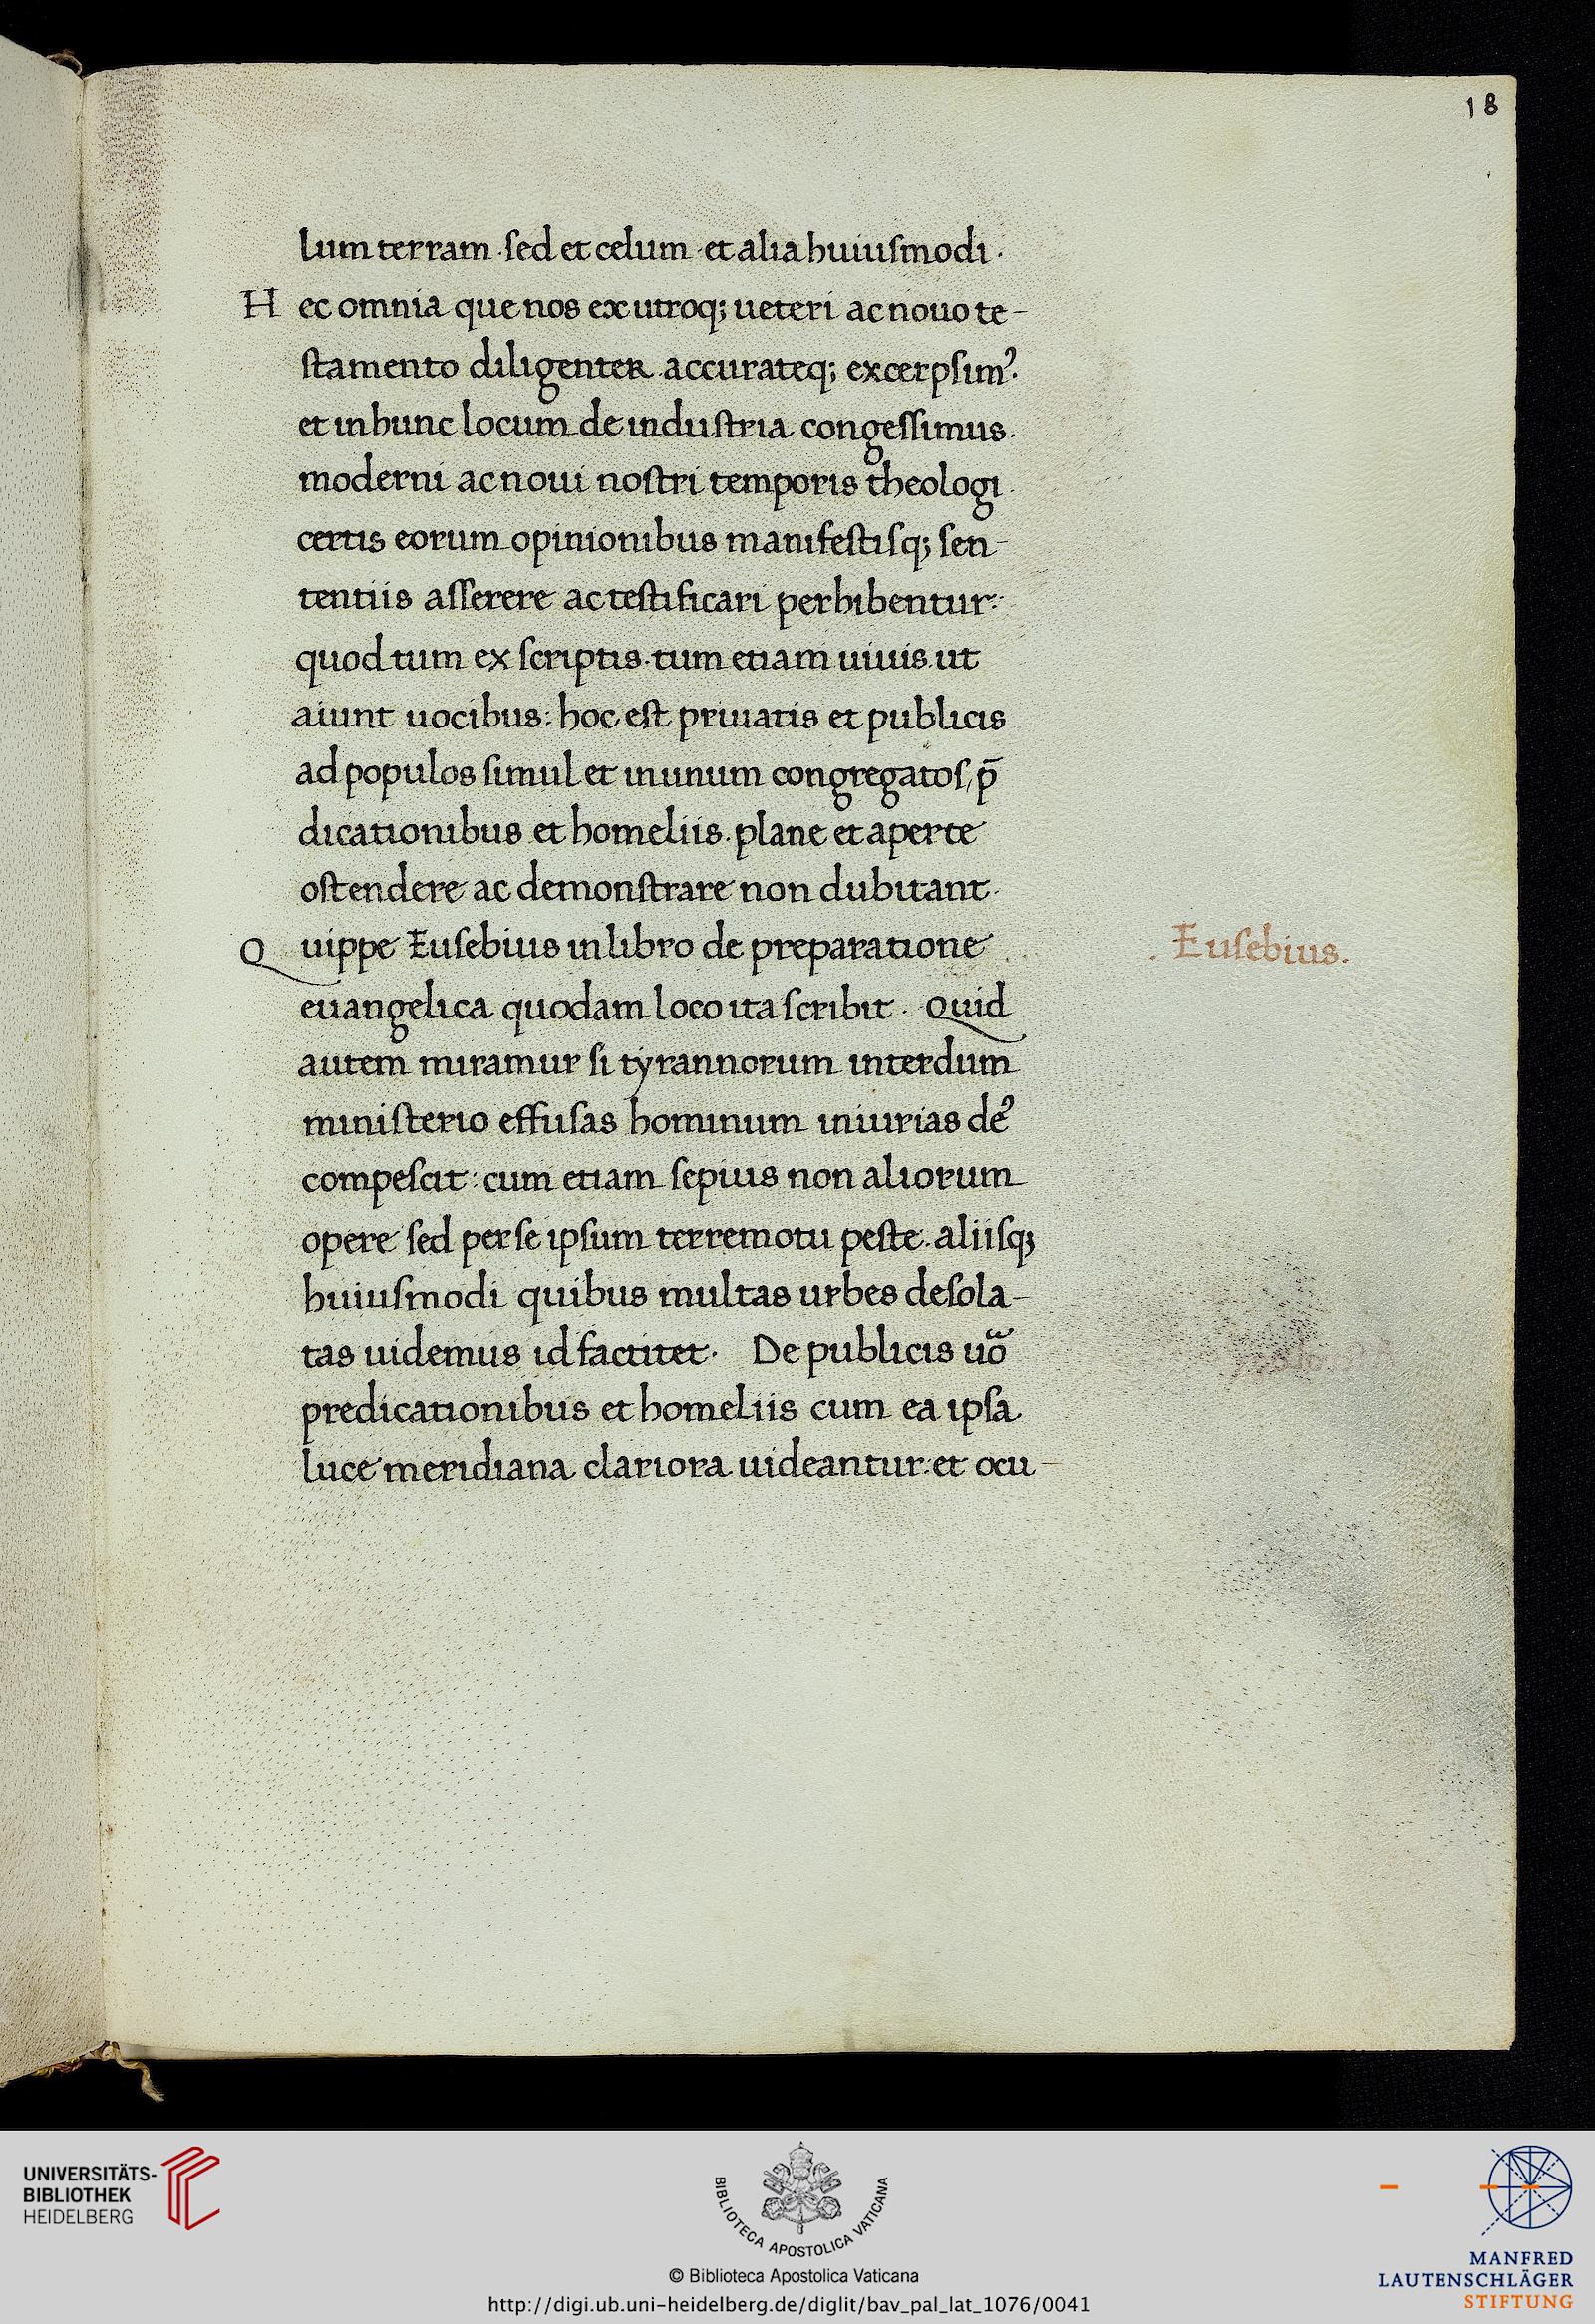 18
lum terram · sed et celum · et alia huiusmodi ·
H ec omnia que nos ex utroq; ueteri ac nouo te-
stamento diligenter accurateq; excerpsim᾽·
et in hunc locum de industria congessimus.
moderni ac noui nostri temporis theologi.
certis eorum opinionibus manifestisq; sen-
tentiis asserere ac testificari perhibentur:
quod tum ex scriptis · tum etiam uiuis ut
aiunt uocibus: hoc est priuatis et publicis
ad populos simul et in unum congregatos, p̄
dicationibus et homeliis. plane et aperte
ostendere ac demonstrare non dubitant.
Q uippe Eusebius in libro de preparatione
. Eusebius.
euangelica quodam loco ita scribit . Quid
autem miramur si tyrannorum interdum
ministerio effusas hominum iniurias de᾽
compescit: cum etiam sepius non aliorum
opere sed per se ipsum terremotu peste. aliisq;
huiusmodi quibus multas urbes desola-
tas uidemus id factitet · De publicis uͣo
predicationibus et homeliis cum ea ipsa
luce meridiana clariora uideantur: et ocu-
UNIVERSITÄTS-
BIBLIOTHEK
HEIDELBERG
BIBLIOTECA APOSTOLICA VATICANA
© Biblioteca Apostolica Vaticana
http://digi.ub.uni-heidelberg.de/diglit/bav_pal_lat_1076/0041
MANFRED
LAUTENSCHLÄGER
STIFTUNG